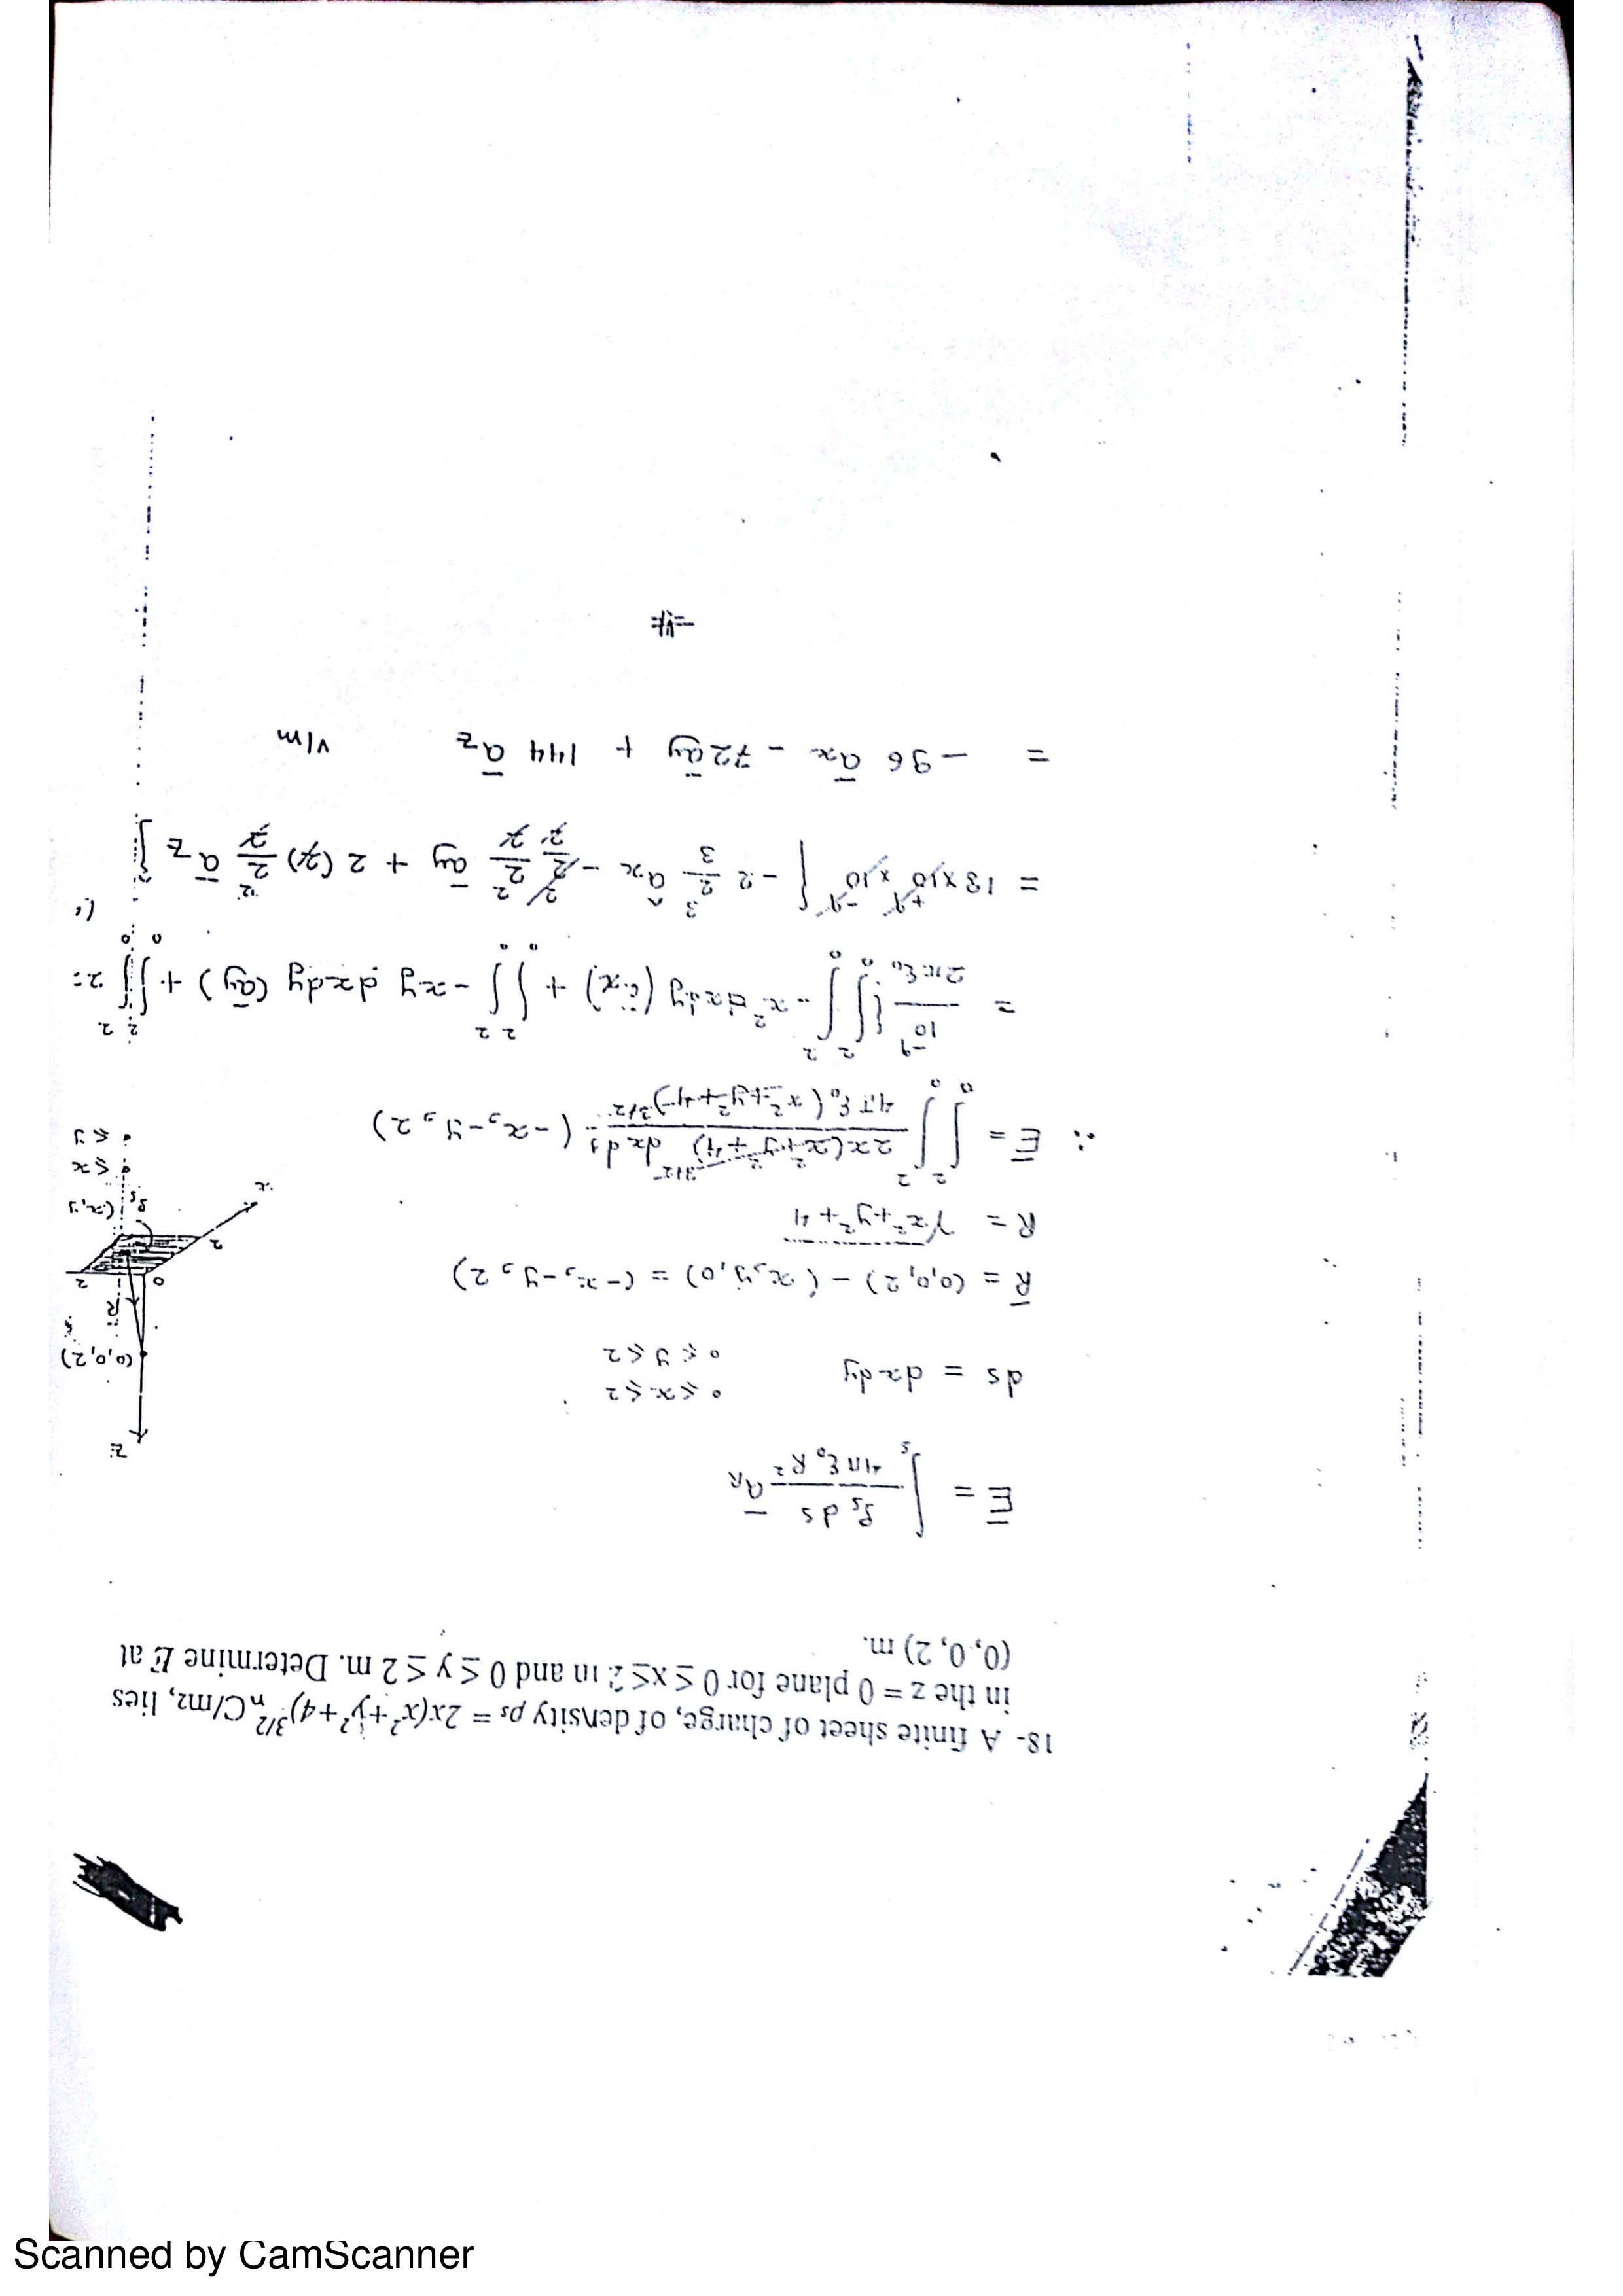 18- A finite sheet of charge, of density ρs = 2x(x²+y²+4)^3/2 nC/m2, lies
in the z = 0 plane for 0 ≤ x ≤ 2 m and 0 ≤ y ≤ 2 m. Determine E at
(0, 0, 2) m.
E̅ = ∫s ρs ds / 4πε₀R² a̅R
ds = dxdy
0 ≤ x ≤ 2
0 ≤ y ≤ 2
R̅ = (0,0,2) - (x,y,0) = (-x,-y,2)
R = √x²+y²+4
∴ E̅ = ∫₀² ∫₀² 2x(x²+y²+4)^3/2 dxdy / 4πε₀(x²+y²+4)^3/2 · (-x,-y,2)
= 10⁻⁹ / 2πε₀ { ∫₀² ∫₀² -x² dxdy (a̅x) + ∫₀² ∫₀² -xy dxdy (a̅y) + ∫₀² ∫₀² 2x
= 18×10⁺⁹ × 10⁻⁹ { -2 2³/3 âx - 2²/2 2²/2 a̅y + 2 (2) 2²/2 a̅z }
= -96 a̅x - 72 a̅y + 144 a̅z V/m
z
(0,0,2)
R
0
2
2
ρs
(x,y
x
0 ≤ x
0 ≤ y
Scanned by CamScanner